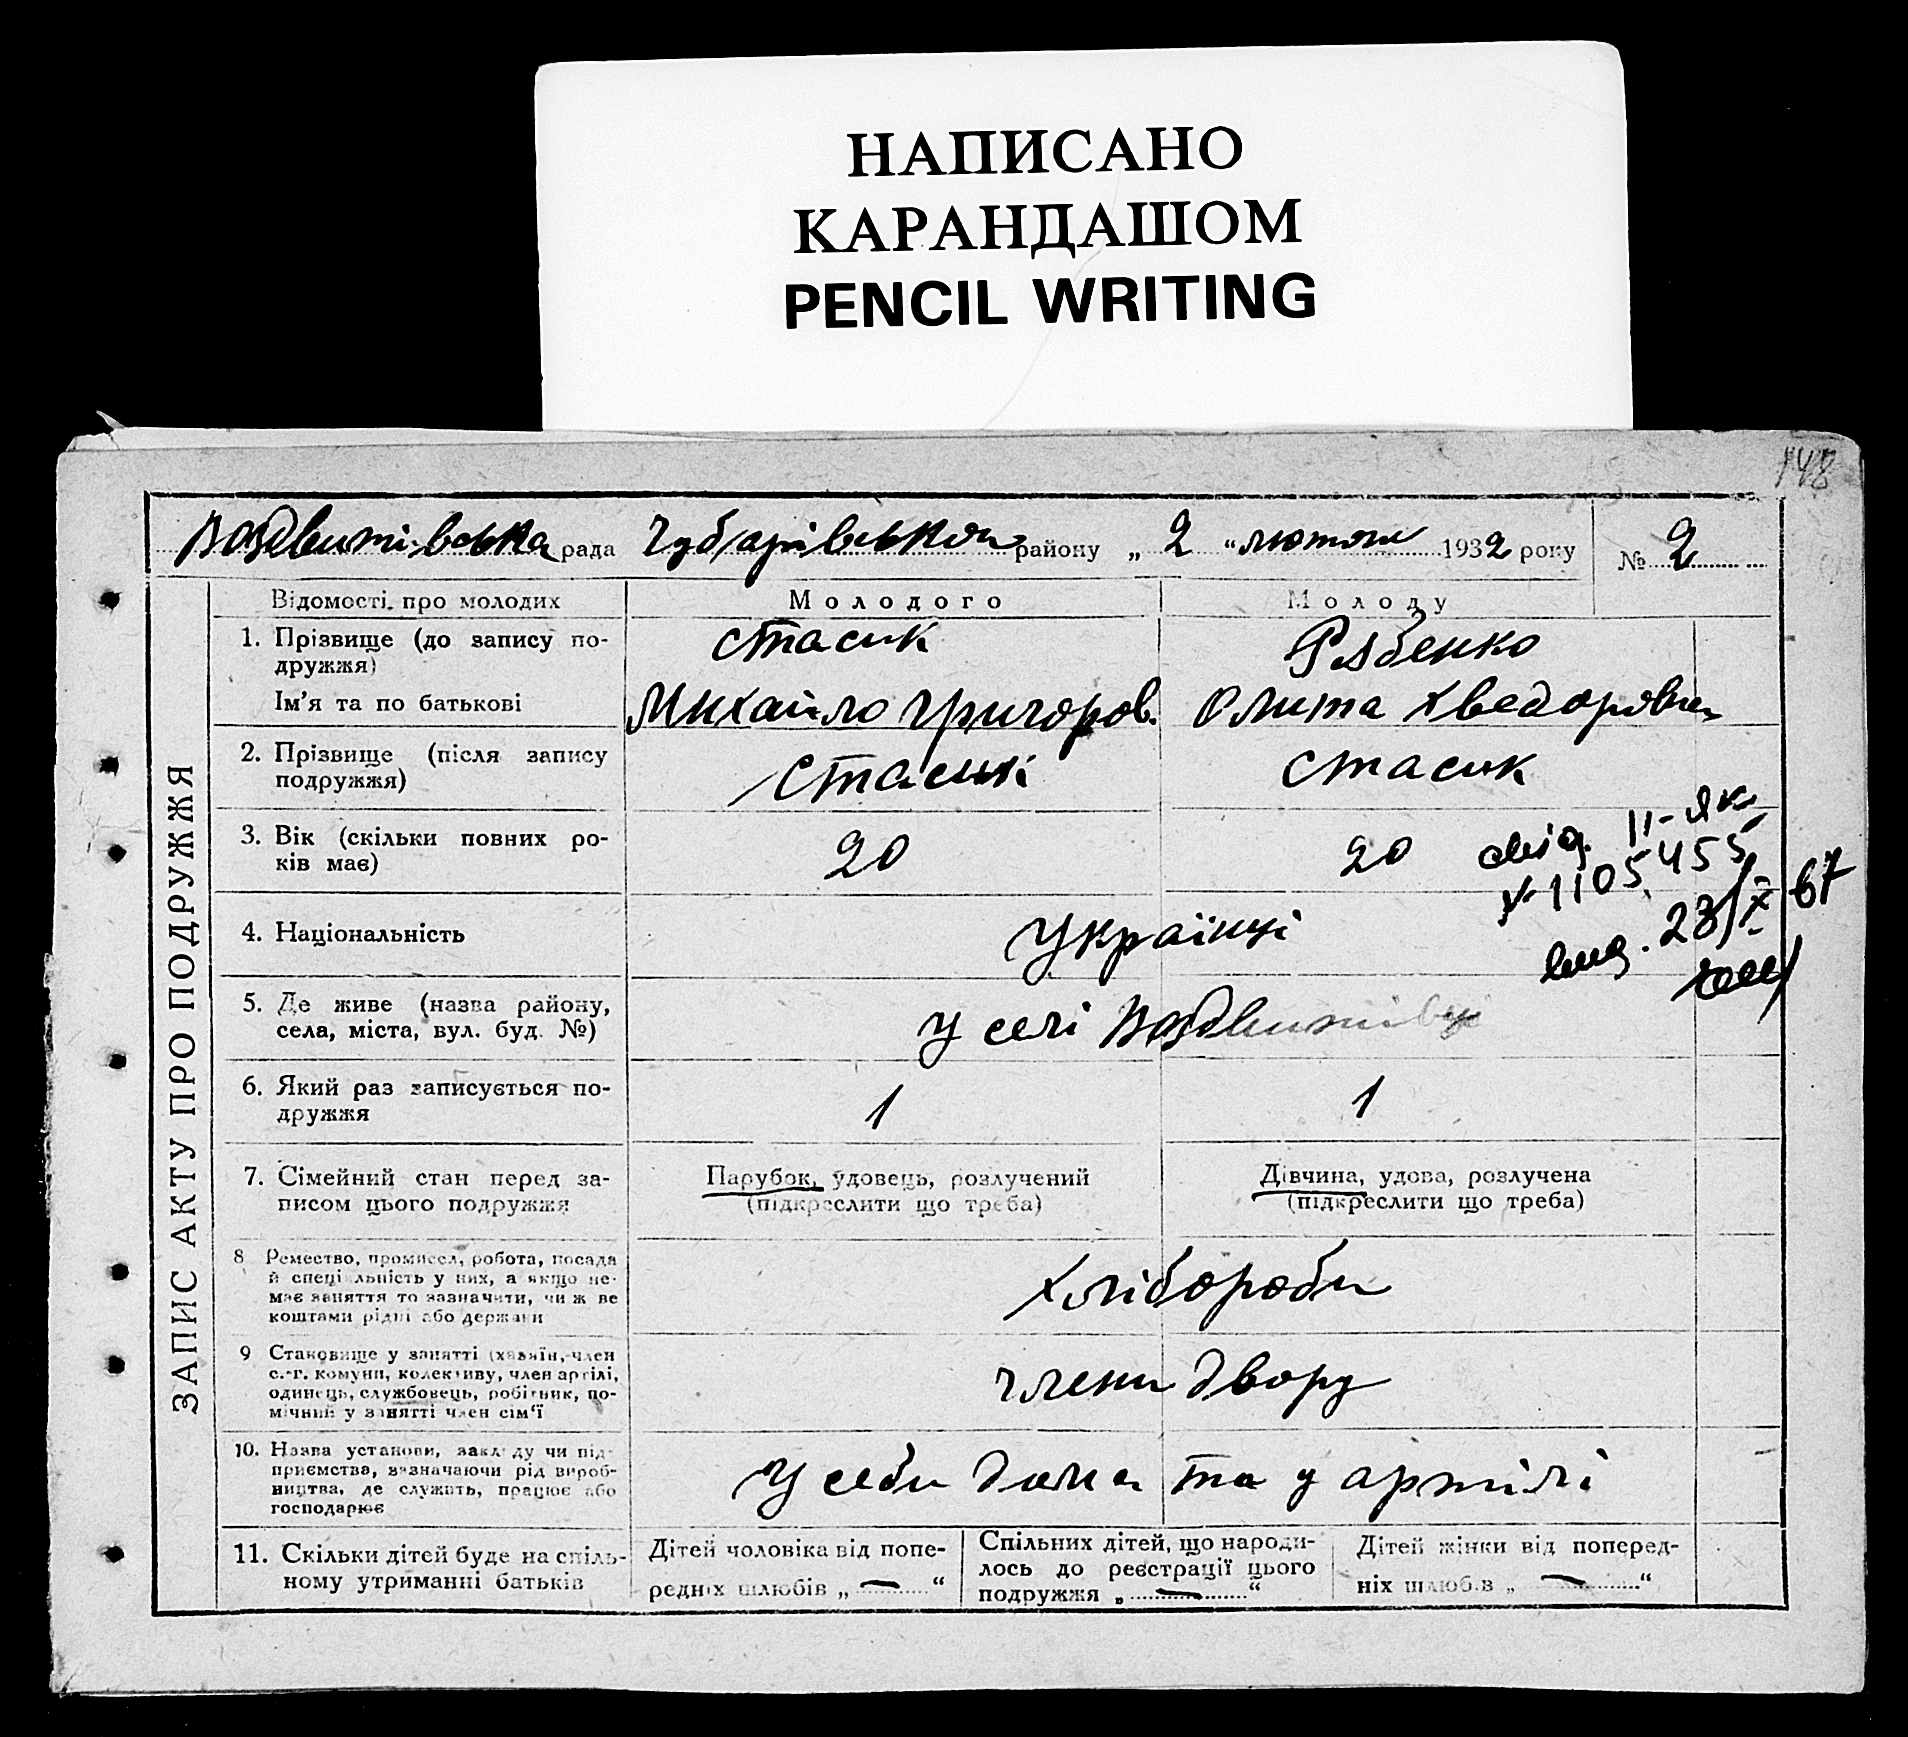 НАПИСАНО
КАРАНДАШОМ
PENCIL WRITING
148
Воздвиживська рада Чубарівського району „ 2 “ лютого 1932 року № 2
ЗАПИС АКТУ ПРО ПОДРУЖЖЯ
Відомості про молодих Молодого Молоду
1. Прізвище (до запису по- Стасик Рябенко
дружжя)
Ім'я та по батькові Михайло Григоров. Олита Хведоровна
2. Прізвище (після запису Стасик Стасик
подружжя)
3. Вік (скільки повних ро- 20 20
ків має)
свід. II-ЯК
№ 1105455
вид. 23/X 67
4. Національність Українці
5. Де живе (назва району, у селі Воздвижівці
села, міста, вул. буд. №)
6. Який раз записується по- 1 1
дружжя
7. Сімейний стан перед за- Парубок, удовець, розлучений Дівчина, удова, розлучена
писом цього подружжя (підкреслити що треба) (підкреслити що треба)
8 Ремество, промисел, робота, посада Хлібороби
й спеціальність у них, а якщо не-
має заняття то зазначити, чиж ве
коштами рідні або держави
9 Становище у занятті (хазяїн, член члени двору
с.-г. комуни, колективу, член артілі,
одинець, службовець, робітник, по-
мічний у занятті член сім'ї
10. Назва установи, закладу чи під- у себи дома та у артілі
приємства, зазначаючи рід вироб-
ництва, де служить, працює або
господарює
11. Скільки дітей буде на спіль- Дітей чоловіка від попе- Спільних дітей, що народи- Дітей жінки від поперед-
ному утриманні батьків редніх шлюбів „ — “ лось до реєстрації цього ніх шлюбів „ — “
подружжя „ — “